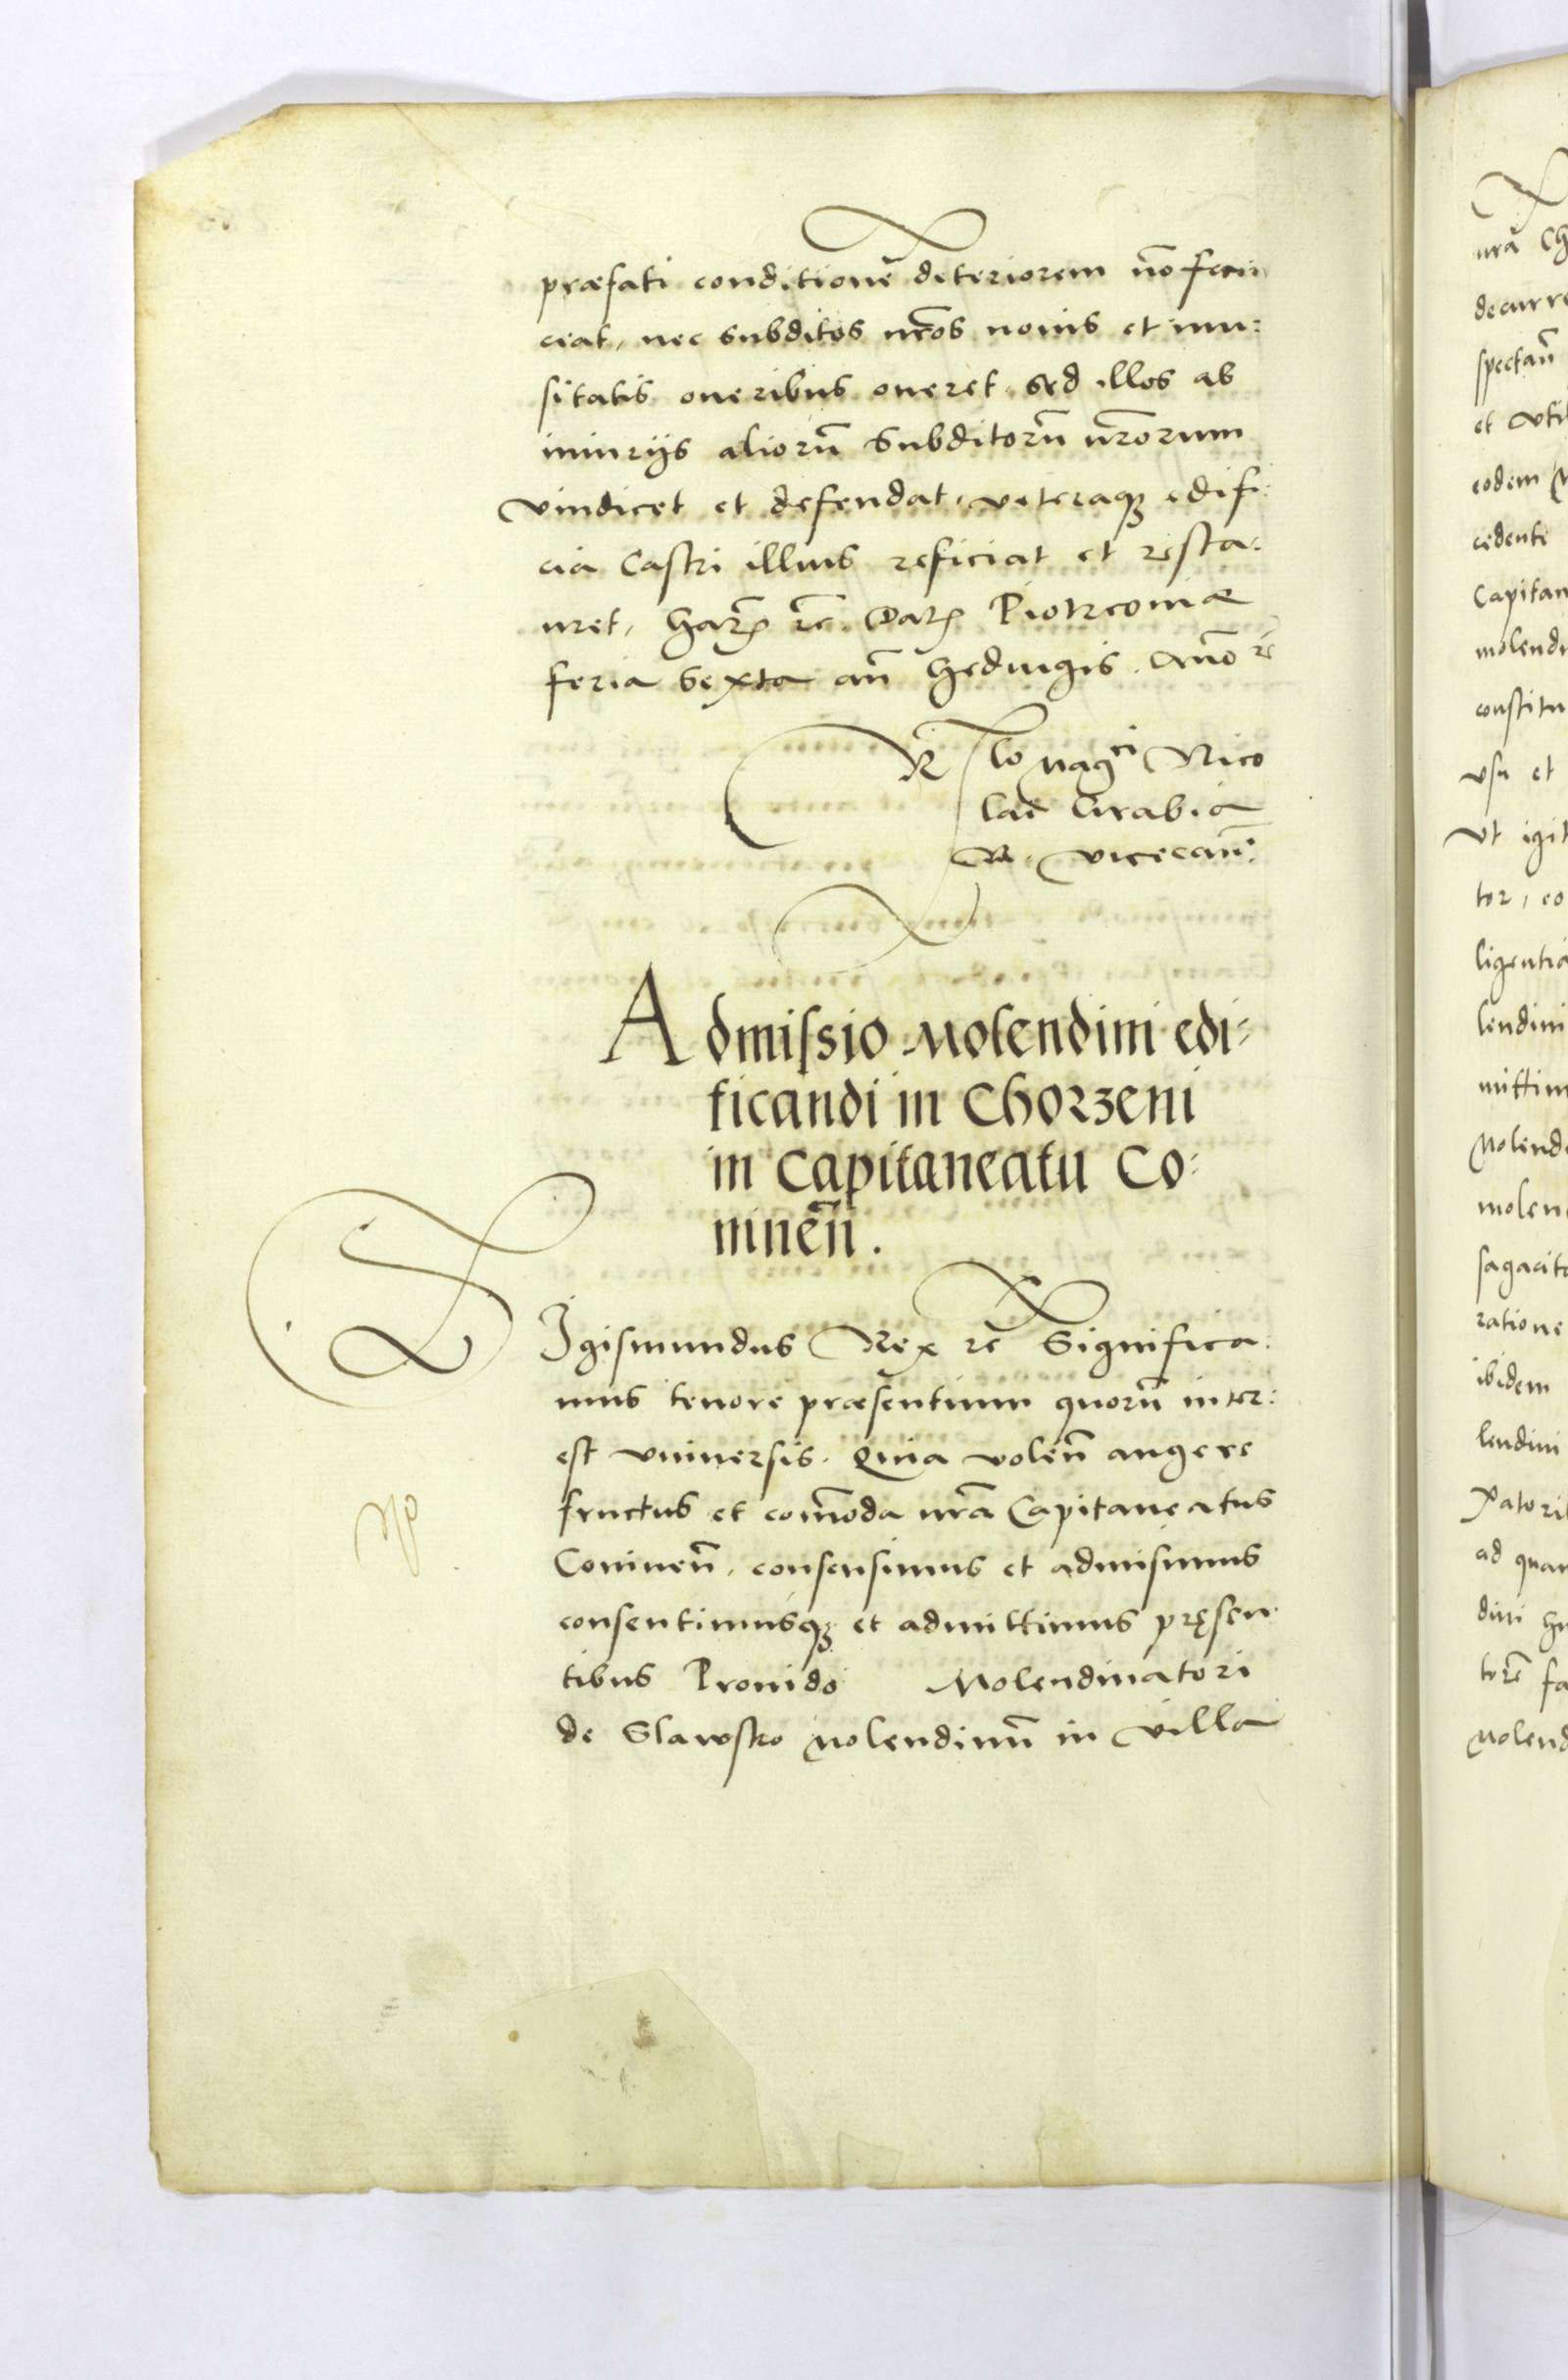 præfati conditionē deteriorem nō faci
ciat, nec subditos nr̄os nouis et inu:
sitatis oneribus oneret, sed illos ab
iniurijs aliorū Subditorū nr̄orum
vindicet et defendat, veteraq; edifi:
cia Castri illius reficiat et resta:
uret, harꝝ rc̄. Datꝝ Piotrcouiæ
feria Sexta an̄ Hedwigis. Anno rc̄
R̄lo Magci Nico
lae Grabia
R. vicecan:
Admissio Molendini edi=
ficandi in Chorzeni
in Capitaneatu Co:
ninēn.
SIgismundus Rex rc̄ Significa:
mus tenore præsentium quorū inter:
est vniuersis. Quia volen̄ augere
fructus et com̄oda nr̄a Capitaneatus
Coninen̄, consensimus et admisimus
consentimusq; et admittimus pręsen
tibus Prouido Molendinatori
de Slawsko Molendinū in villa
nr̄a Ch
decurre
spectan̄
et vtil
eodem
cedente
Capitan
molendi
constitu
vsu et
Vt igit
tor, co
ligentia
lendini
mittim
Molend
molen
sagacita
ratione
ibidem
lendini
natori
ad quam
dini
torē fa
Molend